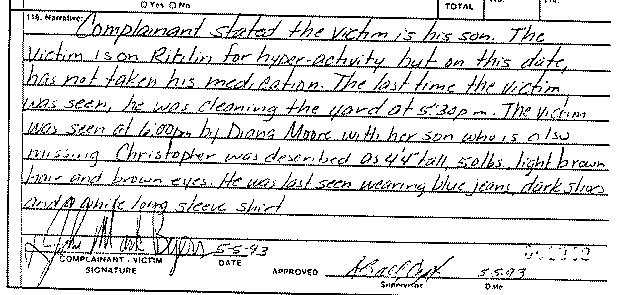 □ Yes □ No
TOTAL
No.
118. Narrative: Complainant stated the victim is his son. The
victim is on Ritilin for hyper-activity but on this date,
has not taken his medication. The last time the victim
was seen, he was cleaning the yard at 5:30pm. The victim
was seen at 6:00pm by Diana Moore with her son who is also
missing Christopher was described as 4'4" tall, 50lbs, light brown
hair and brown eyes. He was last seen wearing blue jeans, dark shoes
and a white long sleeve shirt
John Mark Byers 5-5-93
COMPLAINANT - VICTIM
SIGNATURE
DATE
APPROVED
5-5-93
Supervisor
Date